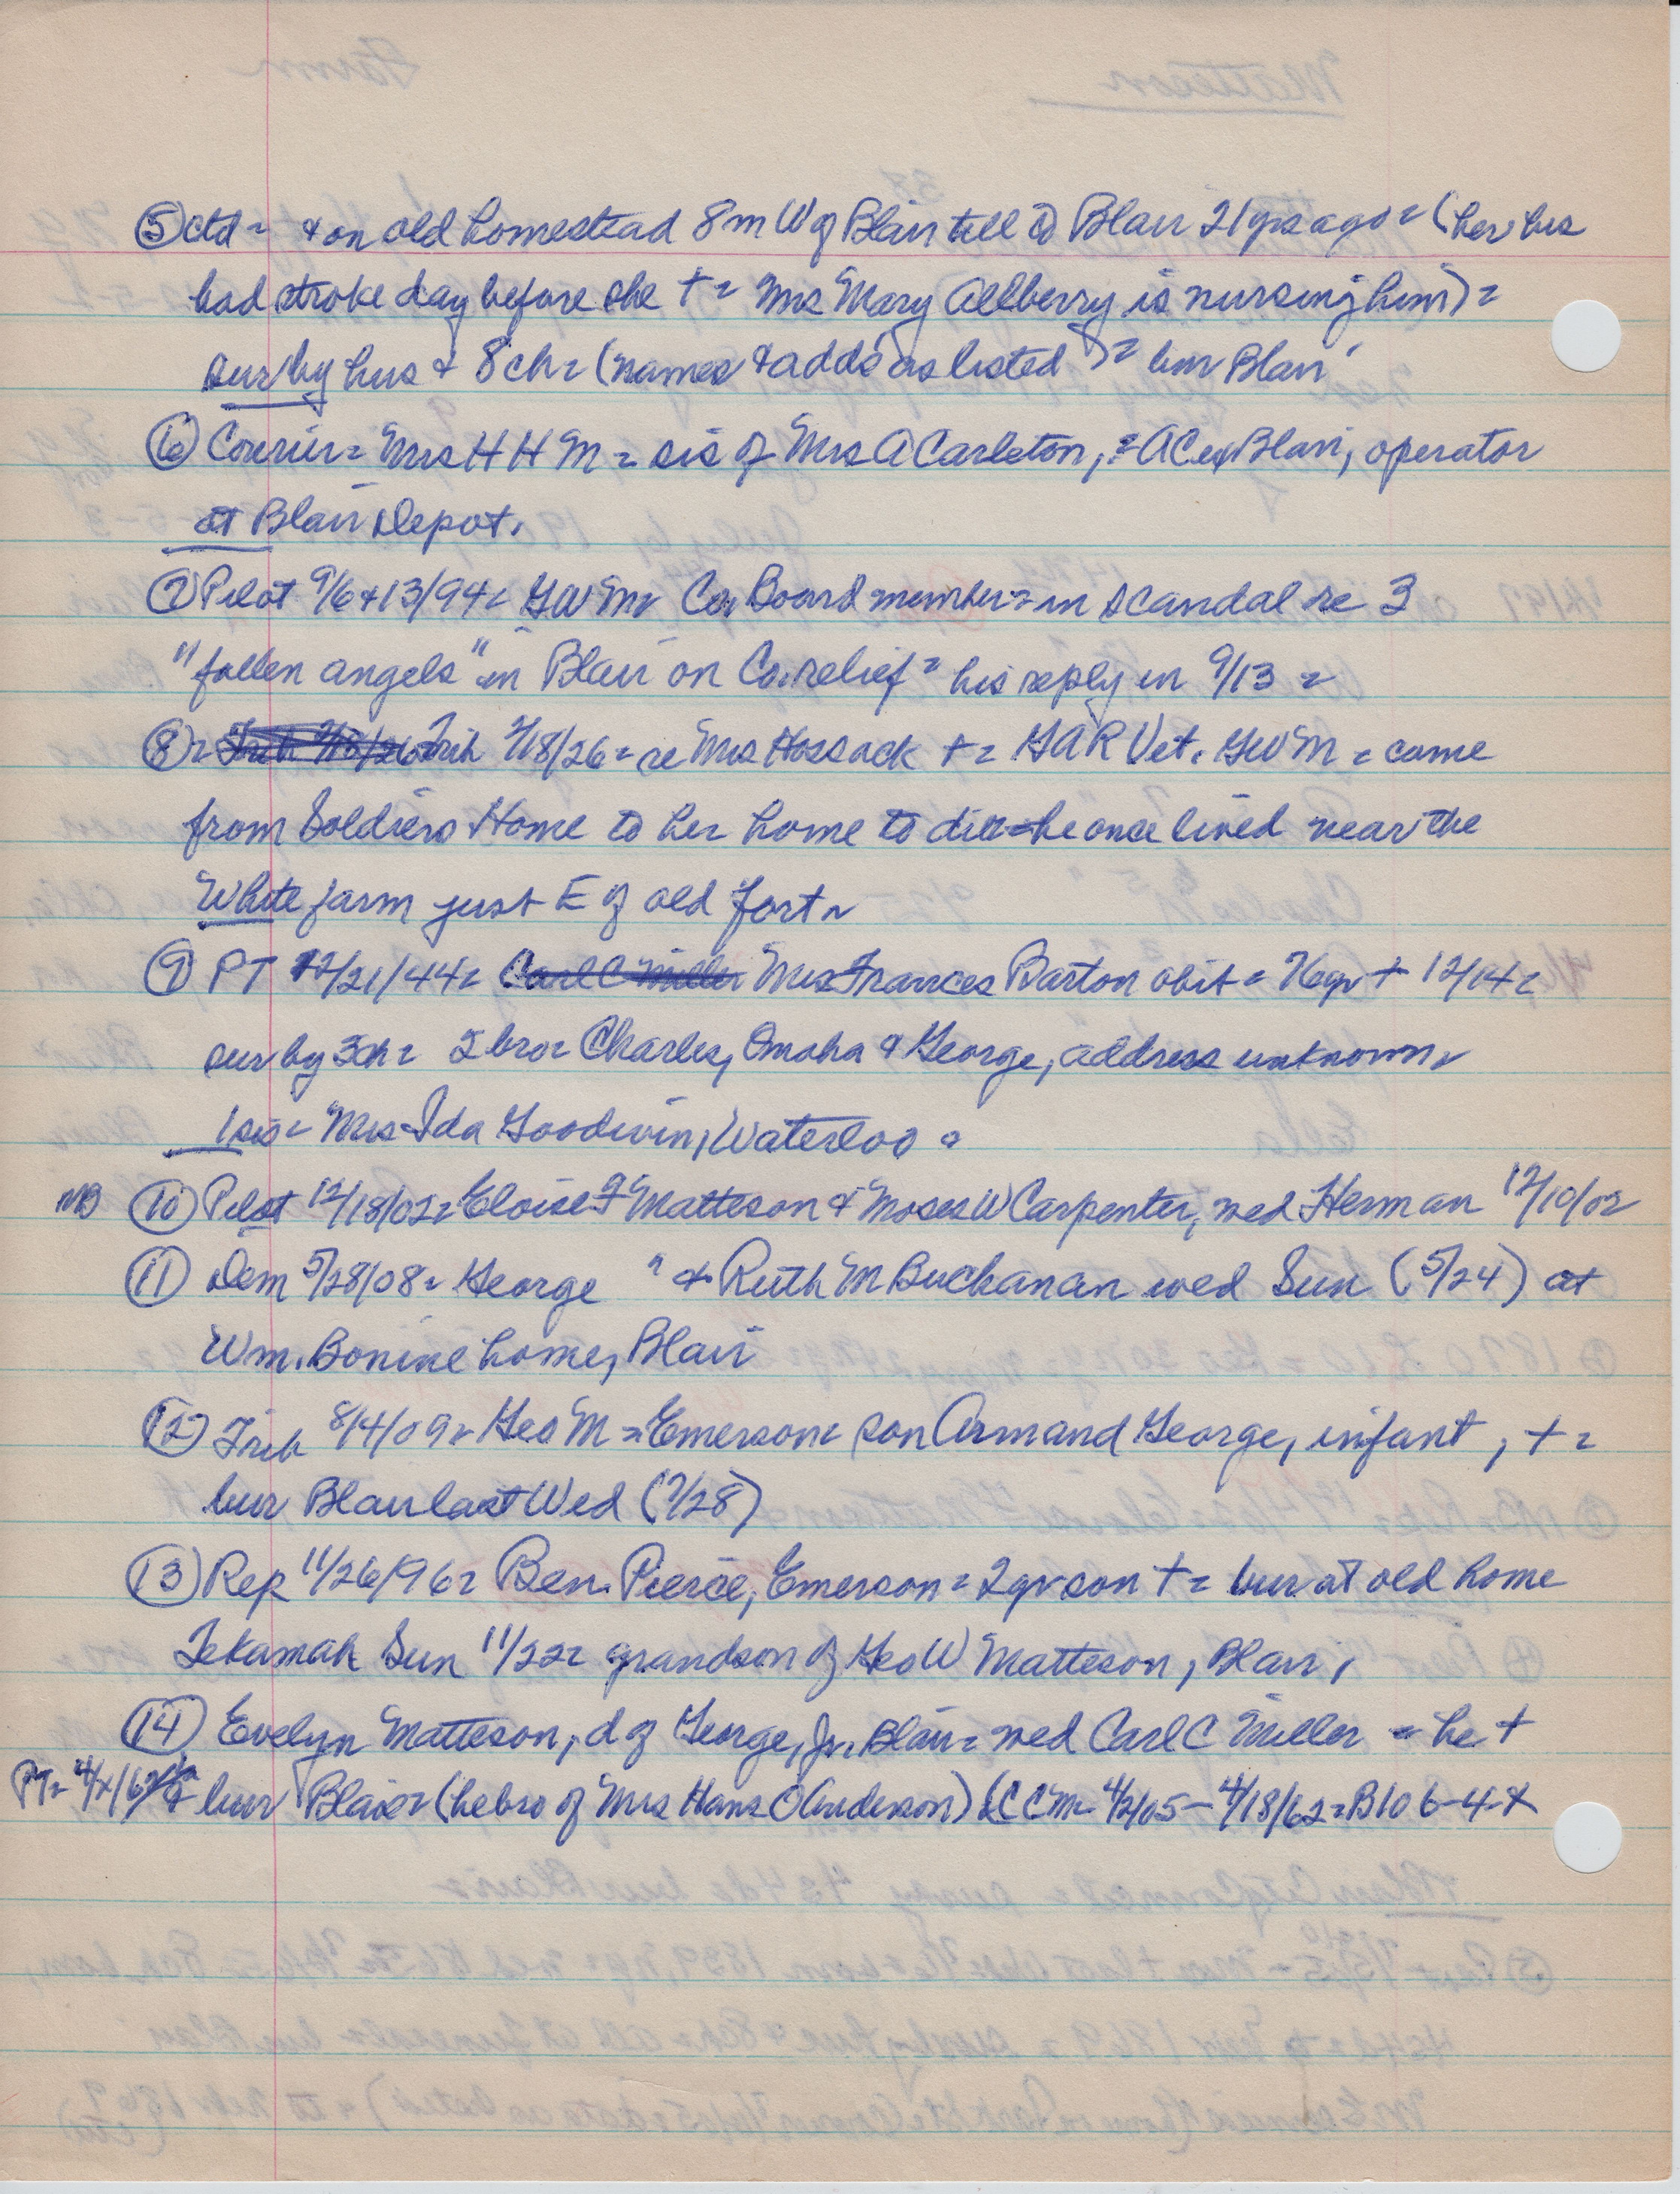 ⑤ ctd = + on old homestead 8 m W of Blair till to Blair 21 yrs ago = (her hus
had stroke day before she + = Mrs Mary Allberry is nursing him) =
sur by hus + 8 ch = (names & adds as listed) = bur Blair
⑥ Courier = Mrs H H M = sis of Mrs A Carleton, = AC ex Blair, operator
at Blair Depot.
⑦ Pilot 9/6 + 13/94 = GW M = Co. Board member = in scandal re 3
"fallen angels" in Blair on Co. relief = his reply in 9/13 =
⑧ = Trib 2/18/26 = re Mrs Hossack + = GAR Vet. GW M = came
from Soldiers Home to her home to die = he once lived near the
White farm just E of old fort =
⑨ PT 12/21/44 = Carl C Miller Mrs Frances Barton obit = 76 yr + 12/14 =
sur by 3 ch = 2 bro = Charles, Omaha & George, address unknown =
1 sis = Mrs Ida Goodwin, Waterloo =
NB ⑩ Pilot 12/18/02 = Eloise F Matteson & Moses W Carpenter, wed Herman 12/10/02
⑪ Dem 5/28/08 = George " & Ruth M Buchanan wed Sun (5/24) at
Wm. Bonine home, Blair
⑫ Trib 8/4/09 = Geo M = Emerson = son Armand George, infant, + =
bur Blair last Wed (7/28)
⑬ Rep 11/26/96 = Ben. Pierce, Emerson = 2 yr son + = bur at old home
Tekamah Sun 11/22 = grandson of Geo W Matteson, Blair,
⑭ Evelyn Matteson, d of George, Jr. Blair = wed Carl C Miller = he +
PT = bur Blair = (he bro of Mrs Hans O Anderson) (CCM = 4/2/05 - 4/18/62 = B106-4-X
Matteson